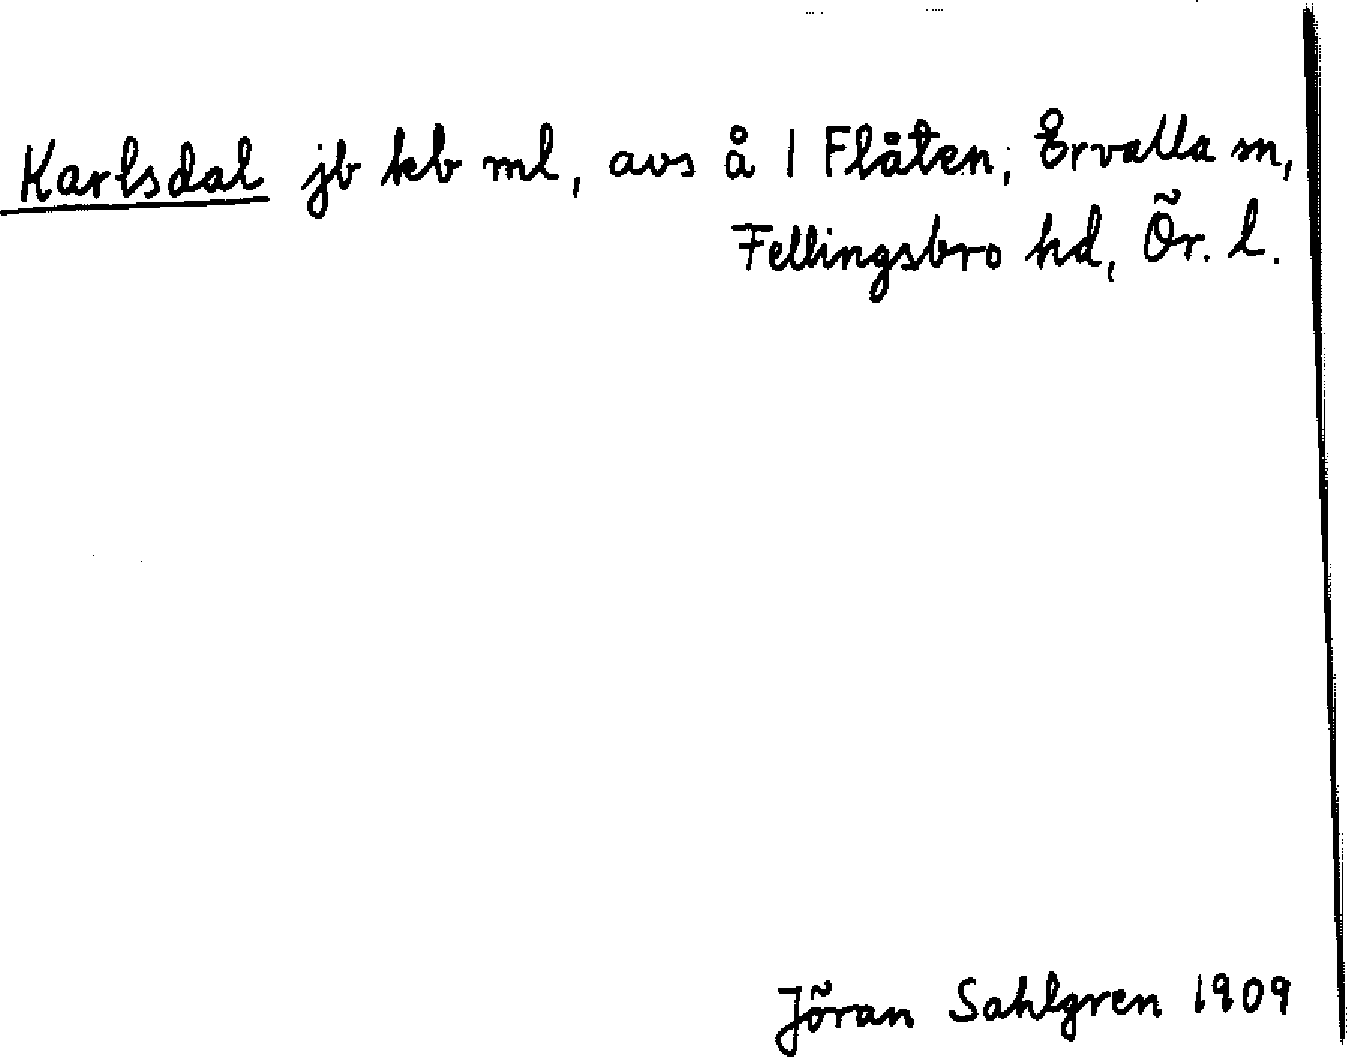 Karlsdal jb kb ml, avs å 1 Flåten, Ervalla sn,
Fellingsbro hd, Ör. l.
Jöran Sahlgren 1909